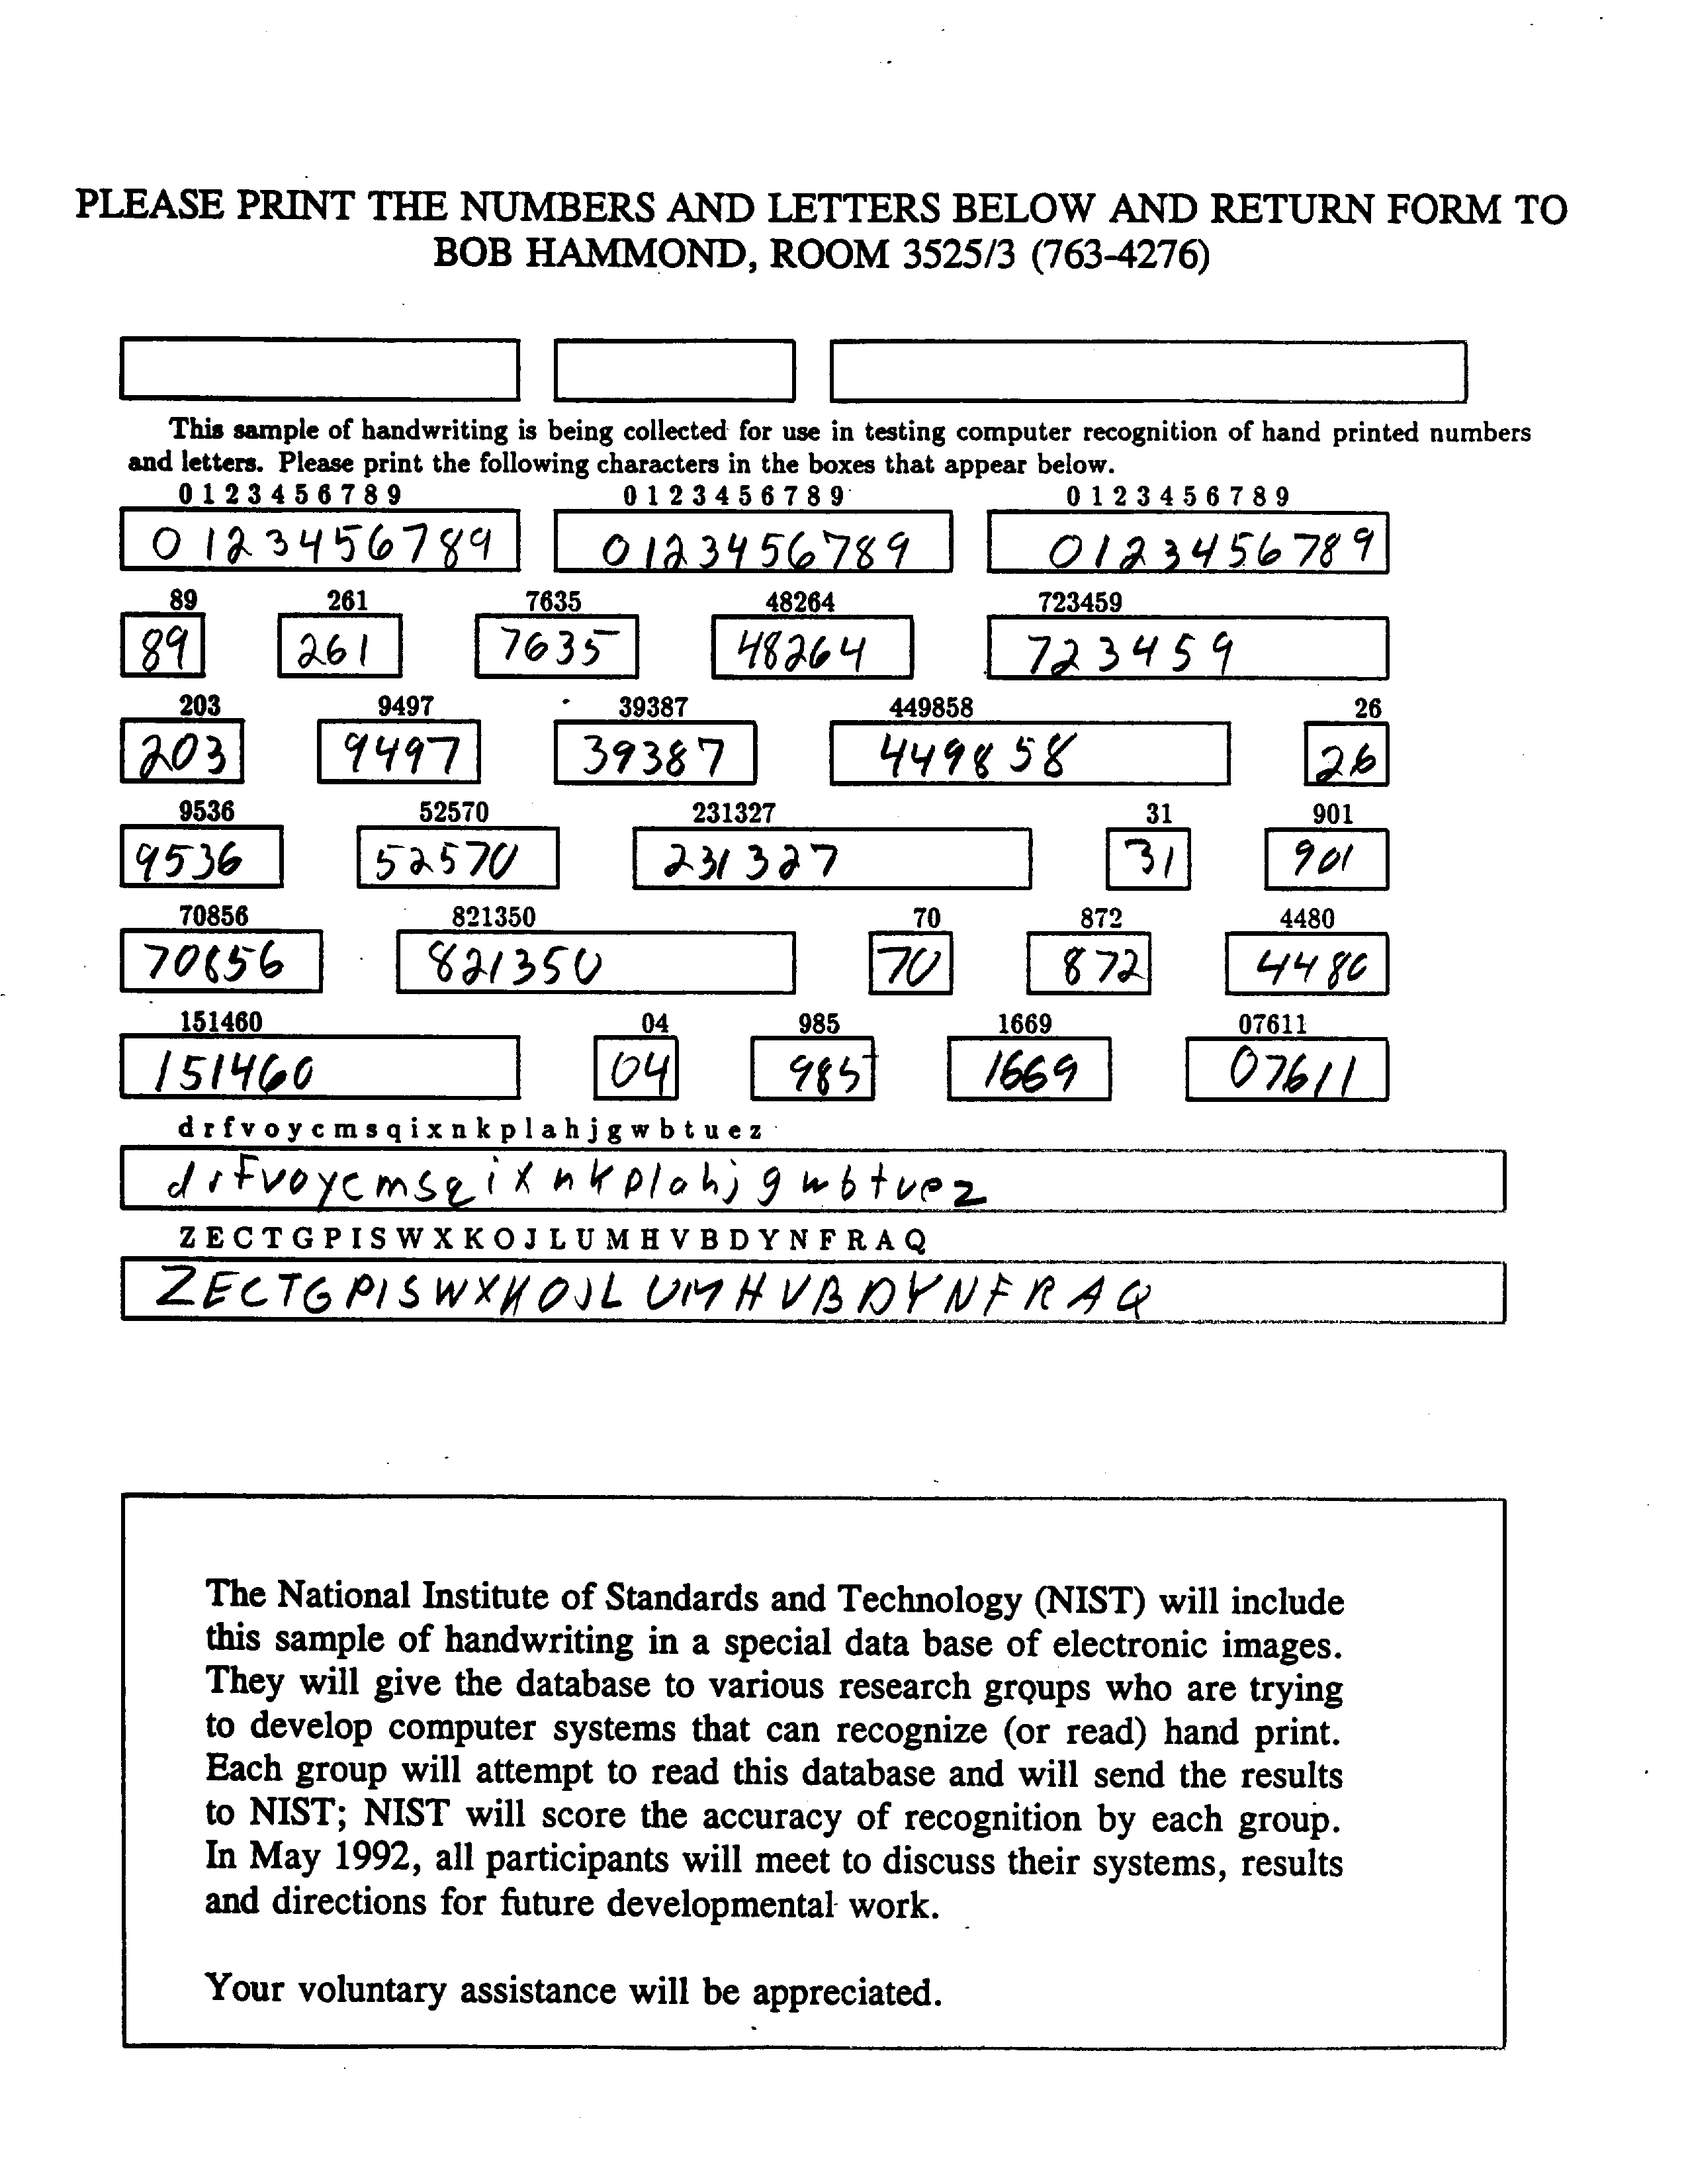 PLEASE PRINT THE NUMBERS AND LETTERS BELOW AND RETURN FORM TO
BOB HAMMOND, ROOM 3525/3 (763-4276)
This sample of handwriting is being collected for use in testing computer recognition of hand printed numbers
and letters. Please print the following characters in the boxes that appear below.
0 1 2 3 4 5 6 7 8 9 0 1 2 3 4 5 6 7 8 9 0 1 2 3 4 5 6 7 8 9
0123456789 0123456789 0123456789
89 261 7635 48264 723459
89 261 7635 48264 723459
203 9497 39387 449858 26
203 9497 39387 449858 26
9536 52570 231327 31 901
9536 52570 231327 31 901
70856 821350 70 872 4480
70856 821350 70 872 4480
151460 04 985 1669 07611
151460 04 985 1669 07611
d r f v o y c m s q i x n k p l a h j g w b t u e z
drfvoycmsqixnkplahjgwbtuez
Z E C T G P I S W X K O J L U M H V B D Y N F R A Q
ZECTGPISWXKOJLUMHVBDYNFRAQ
The National Institute of Standards and Technology (NIST) will include
this sample of handwriting in a special data base of electronic images.
They will give the database to various research groups who are trying
to develop computer systems that can recognize (or read) hand print.
Each group will attempt to read this database and will send the results
to NIST; NIST will score the accuracy of recognition by each group.
In May 1992, all participants will meet to discuss their systems, results
and directions for future developmental work.
Your voluntary assistance will be appreciated.